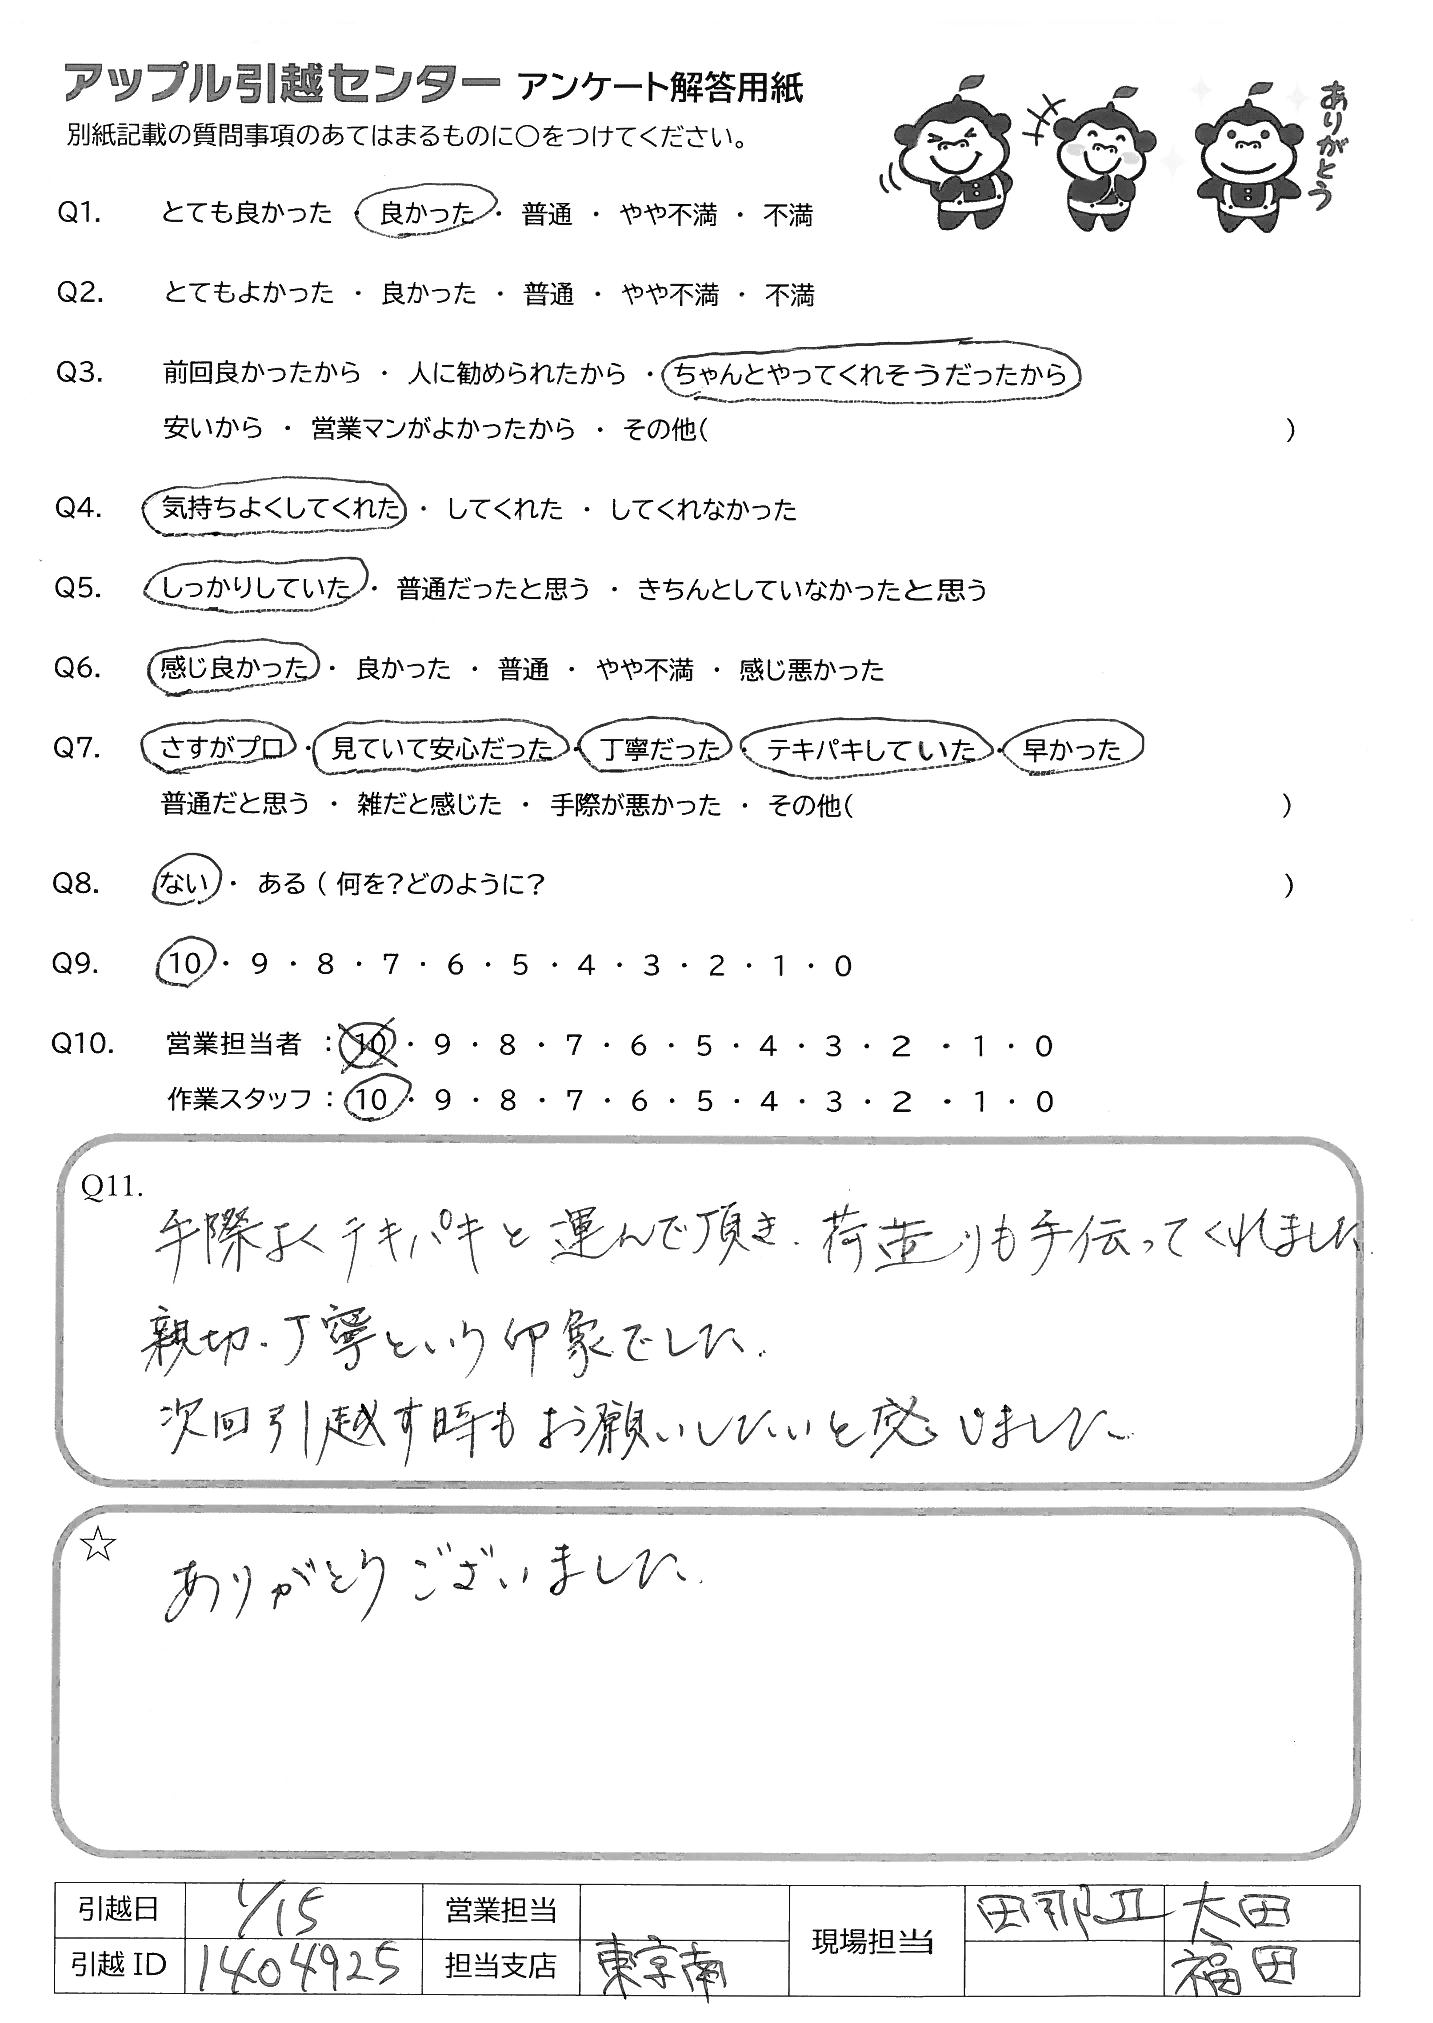 アップル引越センター アンケート解答用紙
別紙記載の質問事項のあてはまるものに○をつけてください。
ありがとう
Q1. とても良かった ・ 良かった ・ 普通 ・ やや不満 ・ 不満
Q2. とてもよかった ・ 良かった ・ 普通 ・ やや不満 ・ 不満
Q3. 前回良かったから ・ 人に勧められたから ・ ちゃんとやってくれそうだったから
安いから ・ 営業マンがよかったから ・ その他( )
Q4. 気持ちよくしてくれた ・ してくれた ・ してくれなかった
Q5. しっかりしていた ・ 普通だったと思う ・ きちんとしていなかったと思う
Q6. 感じ良かった ・ 良かった ・ 普通 ・ やや不満 ・ 感じ悪かった
Q7. さすがプロ ・ 見ていて安心だった ・ 丁寧だった ・ テキパキしていた ・ 早かった
普通だと思う ・ 雑だと感じた ・ 手際が悪かった ・ その他( )
Q8. ない ・ ある ( 何を?どのように? )
Q9. 10 ・ 9 ・ 8 ・ 7 ・ 6 ・ 5 ・ 4 ・ 3 ・ 2 ・ 1 ・ 0
Q10. 営業担当者 : 10 ・ 9 ・ 8 ・ 7 ・ 6 ・ 5 ・ 4 ・ 3 ・ 2 ・ 1 ・ 0
作業スタッフ : 10 ・ 9 ・ 8 ・ 7 ・ 6 ・ 5 ・ 4 ・ 3 ・ 2 ・ 1 ・ 0
Q11.
手際よくテキパキと運んで頂き、荷造りも手伝ってくれました
親切、丁寧という印象でした。
次回引越す時もお願いしたいと感じました。
☆
ありがとうございました。
引越日 1/15 営業担当 現場担当 太田
引越 ID 1404925 担当支店 東京南 福田